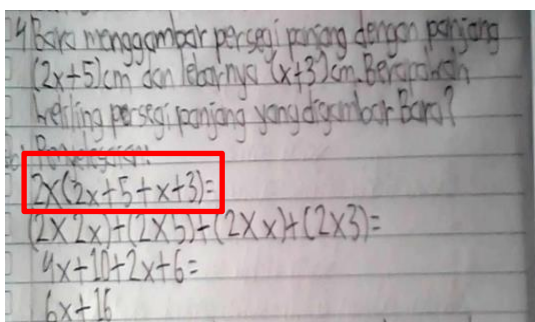 4 Bara menggambar persegi panjang dengan panjang
(2x+5)cm dan lebarnya (x+3)cm. Berapakah
keliling persegi panjang yang digambar Bara?
Penyelesaian:
2x(2x+5+x+3)=
(2x2x)+(2x5)+(2xx)+(2x3)=
4x+10+2x+6=
6x+16